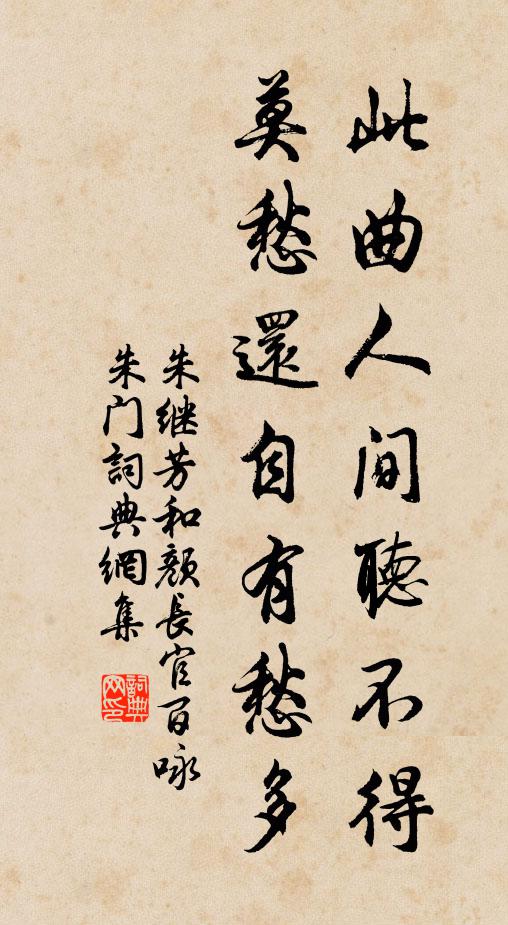 此曲人间聽不得
莫愁還自有愁多
朱继芳和顏長官百咏
朱门詞典網集
詞典网印